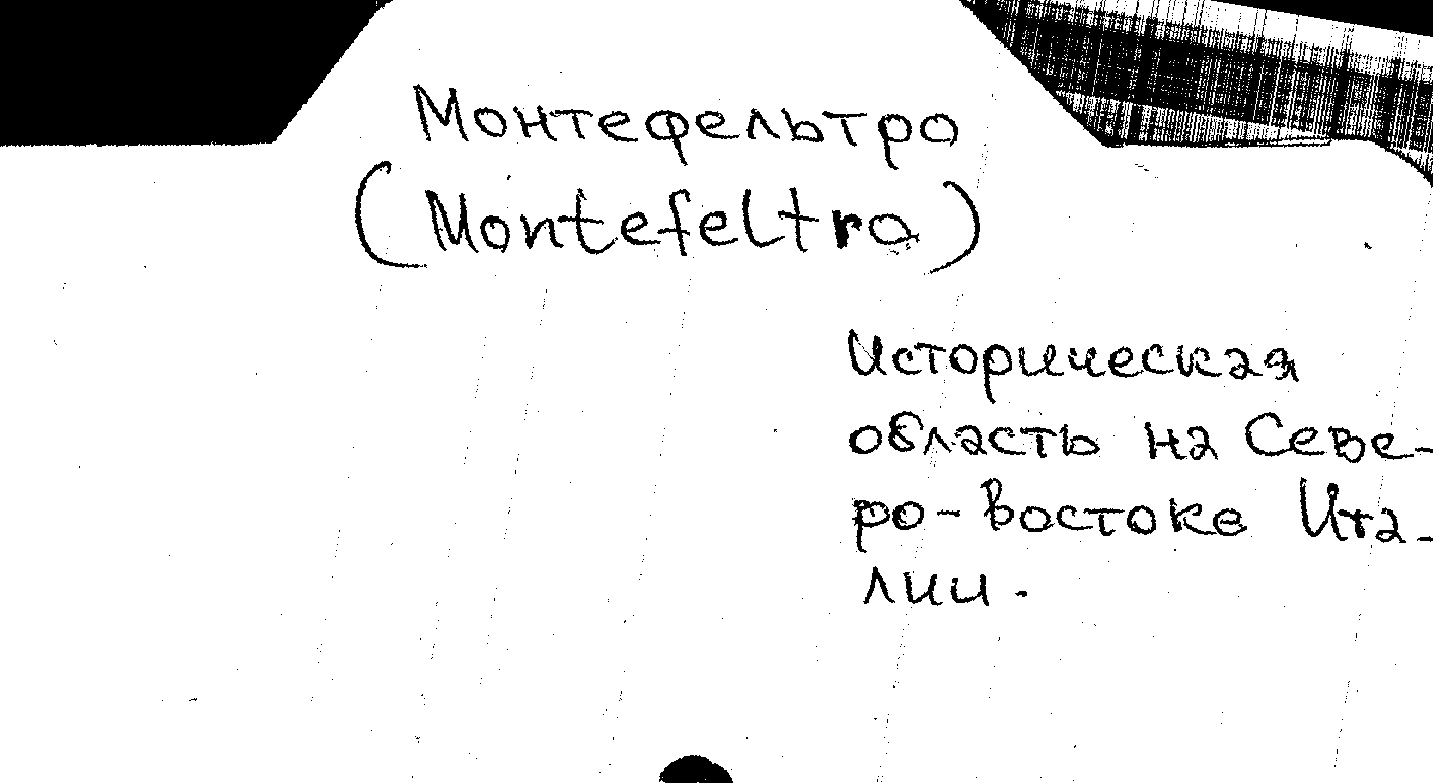 Монтефельтро
(Montefeltro)
Историческая
область на Севе-
ро-Востоке Ита-
лии.